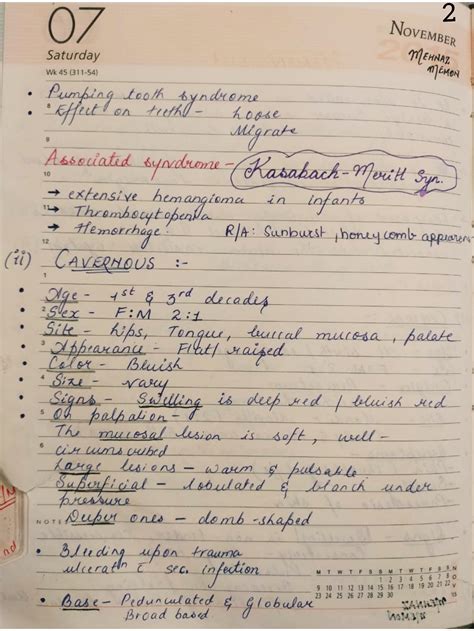 2
07
Saturday
Wk 45 (311-54)
NOVEMBER
MEHNAZ
MEMON
• Pumping tooth syndrome
• Effect on teeth - Loose
Migrate
Associated syndrome - Kasabach-Meritt Syn.
→ extensive hemangioma in infants
→ Thrombocytopenia
→ Hemorrhage. R/A: Sunburst, honeycomb
(ii) CAVERNOUS :-
• Age - 1st & 3rd decades
• Sex - F:M 2:1
• Site - Lips, Tongue, buccal mucosa, palate
• Appearance - Flat/raised
• Color - Bluish
• Size - vary
• Signs - Swelling is deep red / bluish red
• On palpation -
The mucosal lesion is soft, well-
circumscribed
Large lesions - warm & pulsable
Superficial - lobulated & blanch under
pressure
NOTES Deeper ones - domb-shaped
• Bleeding upon trauma
ulceration c̄ sec. infection
• Base - Pedunculated & Globular
Broad based
M T W T F S S M T W T F S S
9 10 11 12 13 14 15 16 17 18 19 20 21 22
23 24 25 26 27 28 29 30